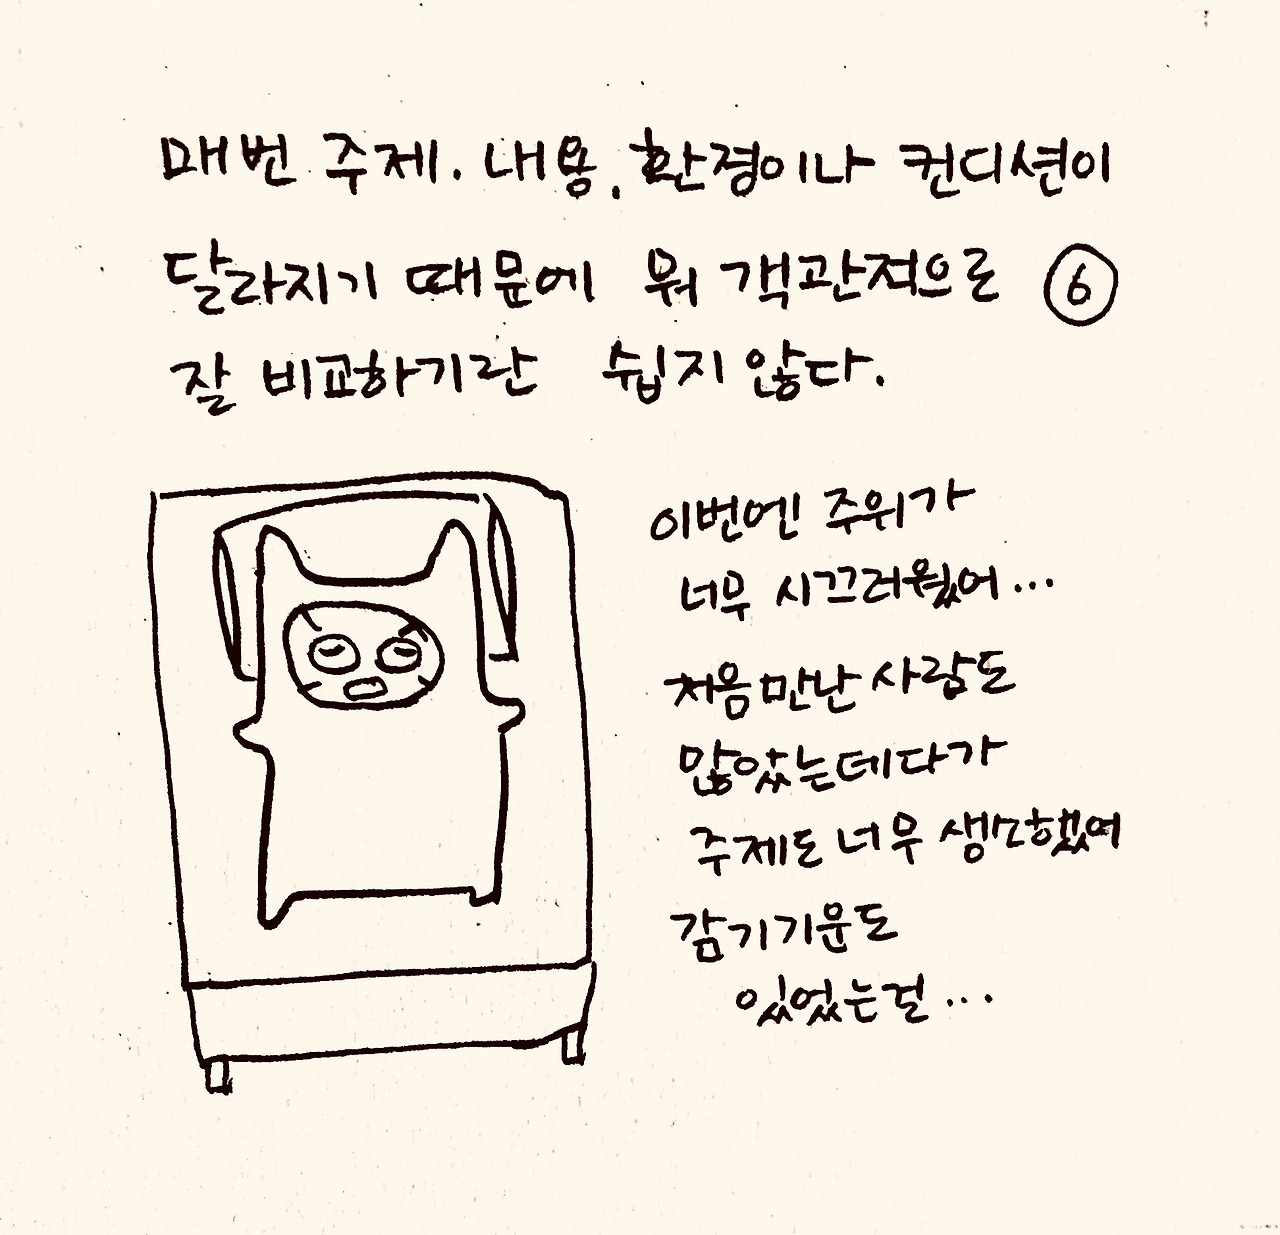 매번 주제. 내용. 환경이나 컨디션이
달라지기 때문에 뭐 객관적으로 ⑥
잘 비교하기란 쉽지 않다.
이번엔 주위가
너무 시끄러웠어...
처음 만난 사람도
많았는데다가
주제도 너무 생소했어
감기기운도
있었는걸...